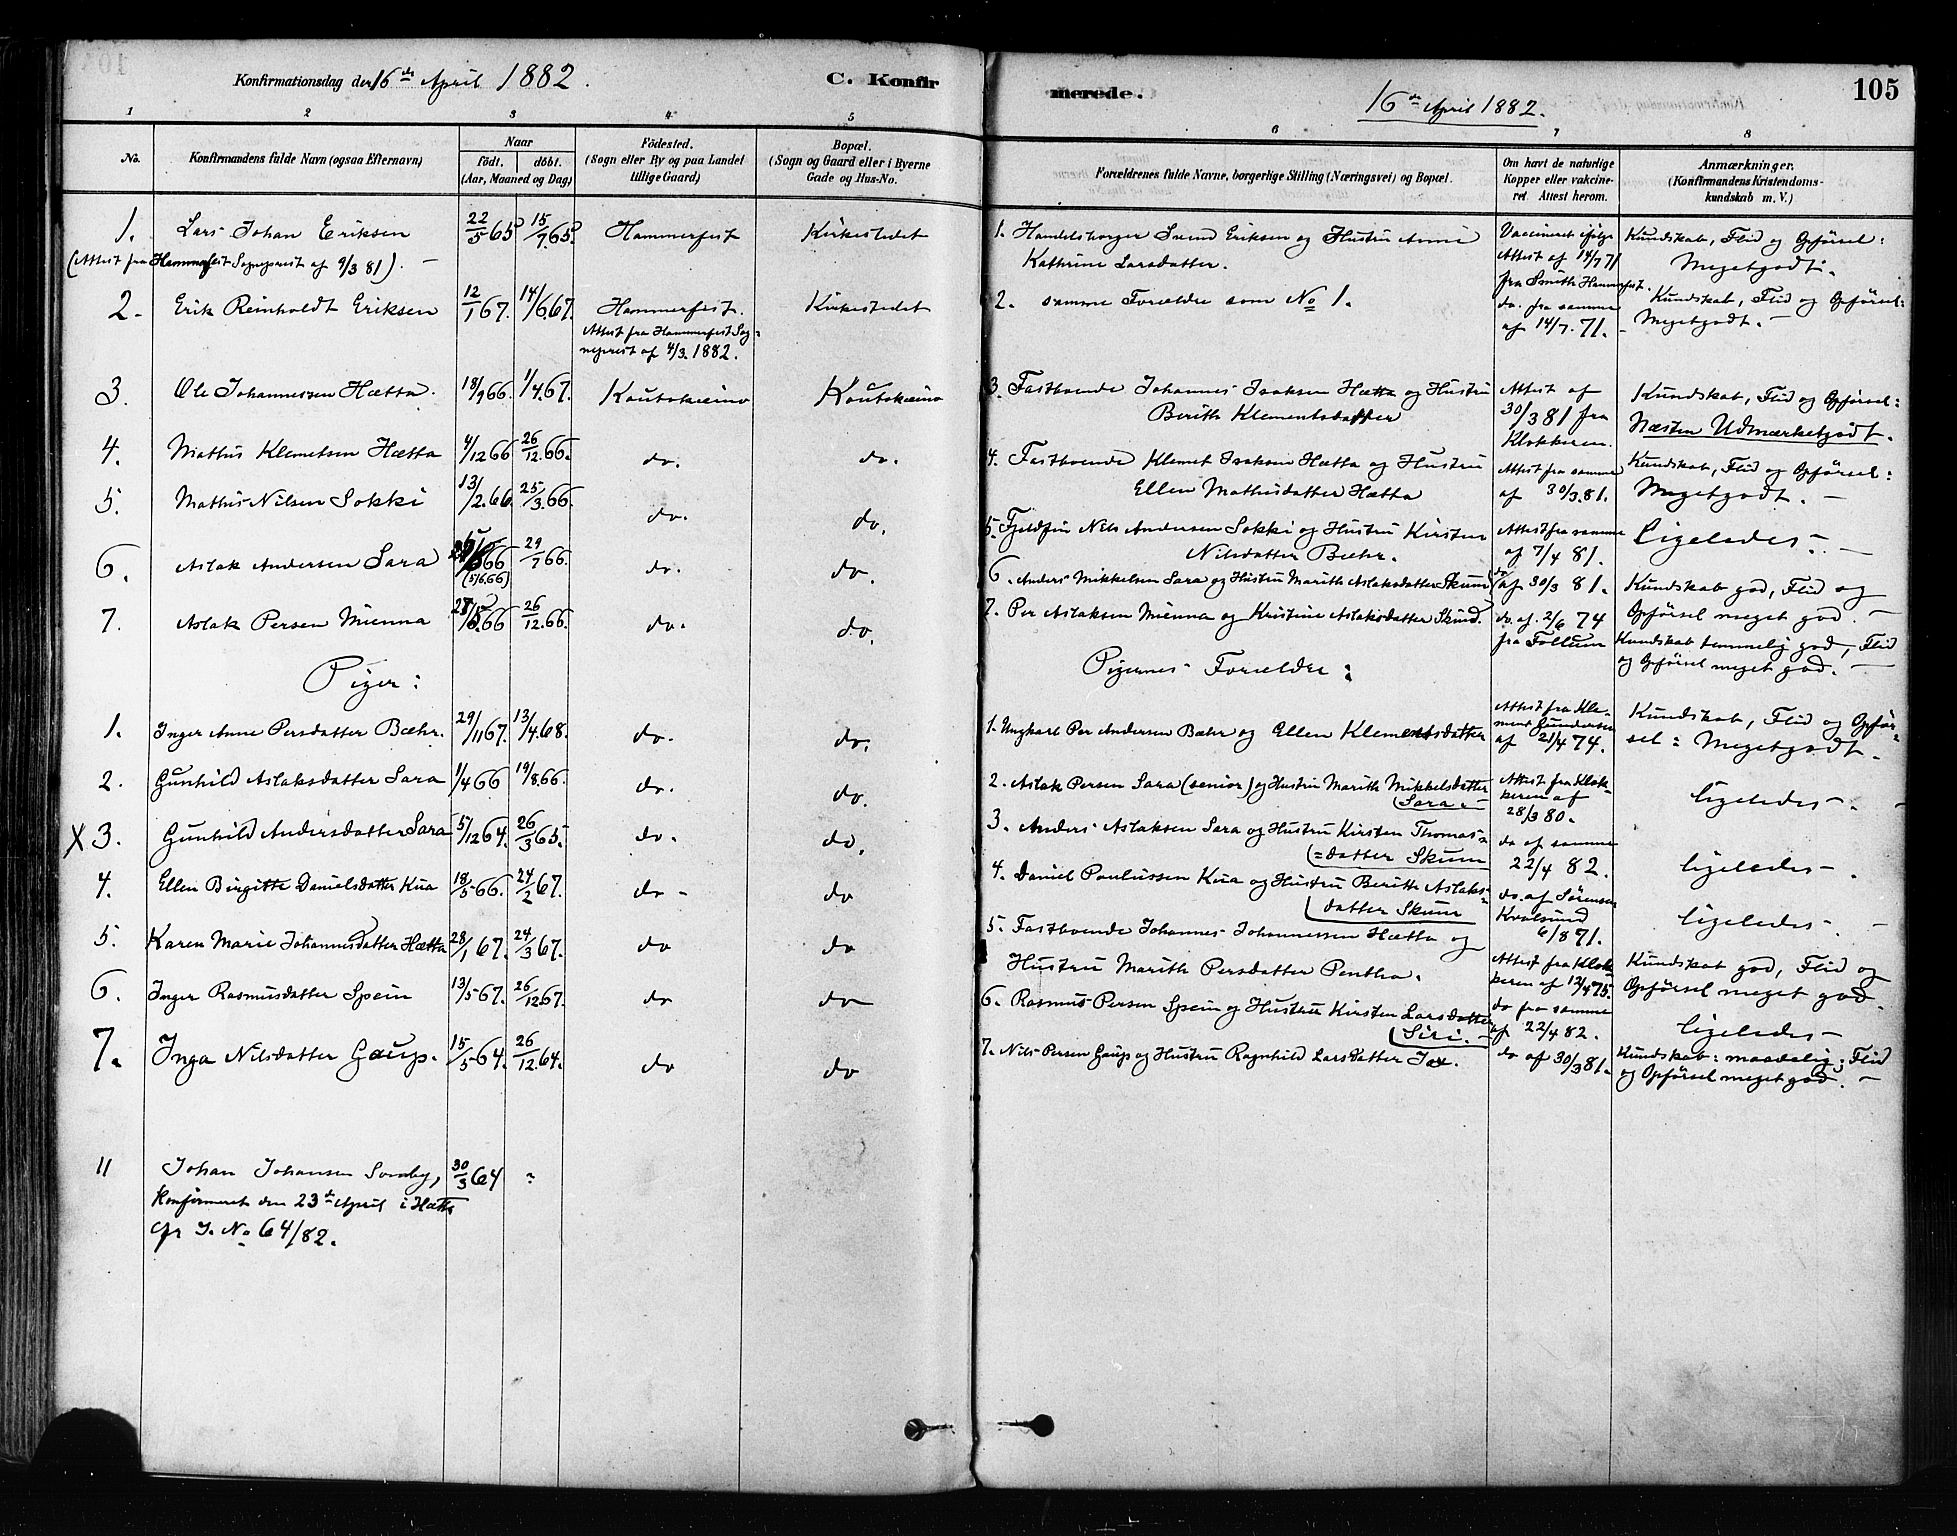 Konfirmationsdag den 16de April 1882.
C. Konfir
1 2 3 4 5
No.
Konfirmandens fulde Navn (ogsaa Efternavn)
Naar
födt. döbt.
(Aar, Maaned og Dag)
Födested.
(Sogn eller By og paa Landet
tillige Gaard)
Bopæl.
(Sogn og Gaard eller i Byerne
Gade og Hus-No.
1. Lars Johan Eriksen 22/5 65 15/7 65 Hammerfest Kirkestedet
(Attest fra Hammerfest Sogneprest af 9/3 81). —
2. Erik Reinholdt Eriksen 12/1 67. 14/6 67. Hammerfest. Kirkestedet
Attest fra Hammerfest Sog=
neprest af 4/3. 1882.
3. Ole Johannessen Hætta. 18/9 66. 1/4 67. Koutokæino Koutokæino
4. Mathis Klemetsen Hætta 4/12 66 26/12. 66. do. do.
5. Mathis Nilsen Sokki 13/2. 66. 25/3. 66. do. do.
6. Aslak Andersen Sara 66 (5/6.66) 29/7 66. do. do.
7. Aslak Persen Mienna 28/5. 66 26/12. 66. do. do.
Piger:
1. Inger Anne Persdatter Bæhr. 29/11 67. 13/4. 68. do. do.
2. Gunhild Aslaksdatter Sara 1/4 66 19/8. 66. do. do.
X 3. Gunhild Andersdatter Sara 5/12 64. 26/3 65. do. do.
4. Ellen Birgitte Danielsdatter Kua 18/5 66. 24/2 67. do - do
5. Karen Marie Johannesdatter Hætta 28/1 67. 24/3 67. do do
6. Inger Rasmusdatter Spein 13/5 67. 26/12 67. do do
7. Inga Nilsdatter Gaup. 15/5 64. 26/12. 64. do do
11 Johan Johansen Somby, 30/3 64 ?
Konfirmeret den 23de April i Hætta
cfr J. No 64/82.
merede.
16de April 1882.
105
6 7 8
Forældrenes fulde Navne, borgerlige Stilling (Næringsvei) og Bopæl.
Om havt de naturlige
Kopper eller vakcine-
ret. Attest herom.
Anmærkninger.
(Konfirmandens Kristendoms-
kundskab m. V.)
1. Handelsborger Svend Eriksen og Hustru Anne
Kathrine Larsdatter.
Vaccineret ifölge
Attest af 14/7 71
fra Smith Hammerfest.
Kundskab, Flid og Opførsel:
Megetgodt.
2. samme Forældre som No 1.
do. fra samme
af 14/7. 71. -
Kundskab, Flid og Opførsel:
Megetgodt. —
3. Fastboende Johannes Isaksen Hætta og Hustru
Berith Klementsdatter
Attest af
30/3 81 fra
Klokkeren.
Kundskab, Flid og Opførsel:
Næsten Udmærketgodt.
4. Fastboende Klemet Isaksen Hætta og Hustru
Ellen Mathisdatter Hætta
Attest fra samme
af 30/3. 81.
Kundskab, Flid og Opførsel:
Megetgodt. —
5. Fjeldfin Nils Andersen Sokki og Hustru Kirsten
Nilsdatter Bæhr.
Attest fra samme
af 7/4 81.
Ligeledes. —
6. Anders Mikkelsen Sara og Hustru Marith Aslaksdatter Skum
do af 30/3 81.
Kundskab god, Flid og
Opførsel meget god. —
7. Per Aslaksen Mienna og Kristine Aslaksdatter Skind.
do. af. 2/6 74
fra Follum
Kundskab temmelig god, Flid
og Opførsel meget god. —
Pigernes Forældre:
1. Ungkarl Per Andersen Bæhr og Ellen Klementsdatter
Attest fra Kle-
ment Gundersen
af 21/4 74.
Kundskab, Flid og Opfør-
sel: Megetgodt.
2. Aslak Persen Sara (senior) og Hustru Marith Mikkelsdatter
Sara. —
Attest fra Klok-
keren af
28/3 80.
ligeledes -. -
3. Anders Aslaksen Sara og Hustru Kirsten Thomas-
=datter Skum
do af samme
22/4 82.
ligeledes -.
4. Daniel Paulussen Kua og Hustru Berith Aslaks-
datter Skum
do. af Sørensen
Kvalsund
6/8 71.
ligeledes -. -
5. Fastboende Johannes Johannessen Hætta og
Hustru Marith Persdatter Pentha.
Attest fra Klok-
keren af 12/4 75.
Kundskab god, Flid og
Opførsel meget god.
6. Rasmus Persen Spein og Hustru Kirsten Larsdatter
Siri. -
do fra samme
af 22/4 82.
ligeledes -
7. Nils Persen Gaup og Hustru Ragnhild Larsdatter
do af 30/3 81.
Kundskab: maadelig; Flid
og Opførsel meget god. —